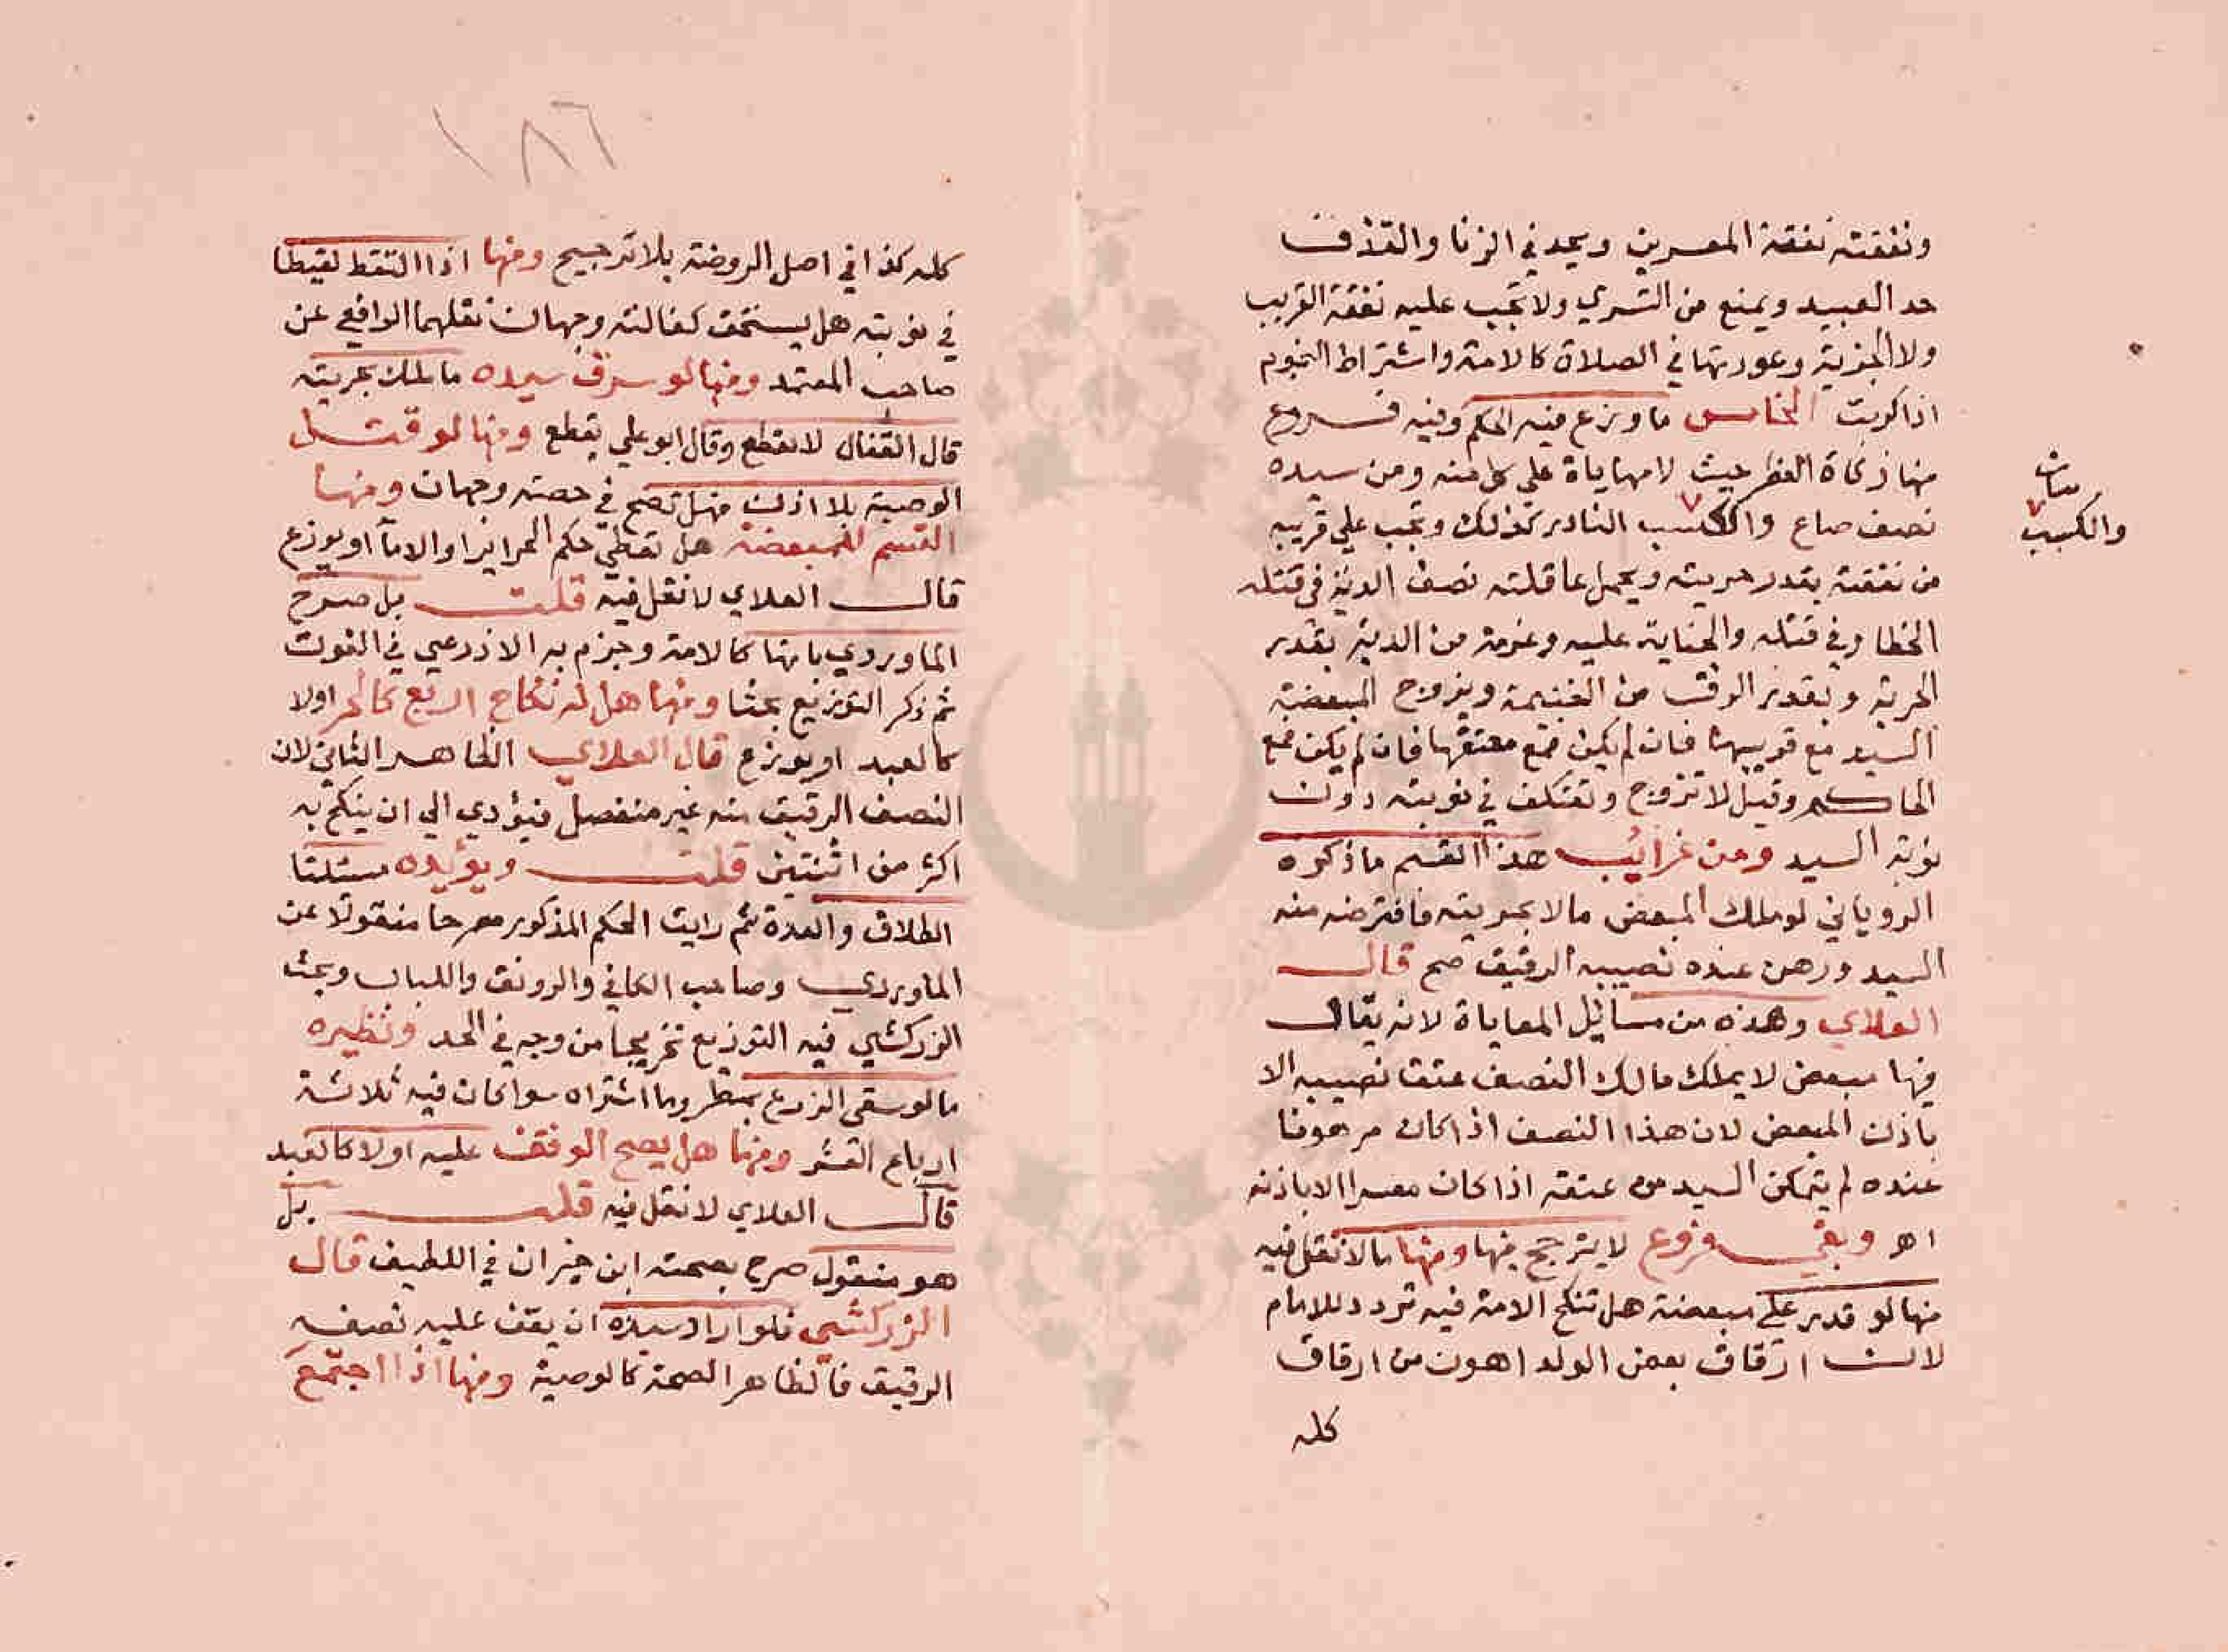 ونفقته نفقة المعسرين ويحد في الزنا والقذف
حد العبيد ويمنع من التسري ولا تجب عليه نفقة القريب
ولا الجزية وعورتها في الصلاة كالامة واشتراط النجوم
اذا كوتب الخامس ما وزع فيه الحكم وفيه فروع
منها زكاة الفطر حيث لا مهاياة علي كل منه ومن سيده
نصف صاع والكسب النادر كذلك وتجب علي قريبه
بيان
والكسب
من نفقته بقدر حريته ويحمل عاقلته نصف الدية في قتله
الخطا وفي قتله والجناية عليه وغرمه من الدية بقدر
الحرية وبقدر الرق من الغنيمة ويزوج المبعضة
السيد مع قريبها فان لم يكن فمع معتقها فان لم يكن فمع
الحاكم وقيل لا تزوج وتعتكف في نوبته دون
نوبة السيد ومن غرايب هذا القسم ما ذكره
الروياني لو ملك المبعض مالا بحريته فاقترضه منه
السيد ورهن عنده نصيبه الرقيق صح قال
العلاي وهذه من مسائل المعاياة لانه يقال
فيها مبعض لا يملك مالك النصف عتق نصيبه الا
باذن المبعض لان هذا النصف اذا كان مرهونا
عنده لم يتمكن السيد من عتقه اذا كان معسرا الا باذنه
اهـ وبقي فروع لا يترجح فيها ومنها ما لا نقل فيه
منها لو قدر علي مبعضة هل تنكح الامة فيه تردد للامام
لان ارقاق بعض الولد اهون من ارقاق
كله
١٨٦
كله كذا في اصل الروضة بلا ترجيح ومنها اذا التقط لقيطا
في نوبته هل يستحق كفالته وجهان نقلهما الرافعي عن
صاحب المعتمد ومنها لو سرق سيده ما ملك بحريته
قال القفال لا يقطع وقال ابو علي يقطع ومنها لو قبل
الوصية بلا اذن فهل تصح في حصته وجهان ومنها
القسم للمبعضة هل تعطي حكم الحراير او الاما او يوزع
قال العلاي لا نقل فيه قلت بل صرح
الماوردي بانها كالامة وجزم به الاذرعي في القوت
ثم ذكر التوزيع بحثا ومنها هل له نكاح اربع كالحر اولا
كالعبد او يوزع قال العلاي الظاهر الثاني لان
النصف الرقيق منه غير منفصل فيؤدي الي ان ينكح به
اكثر من اثنتين قلت ويؤيده مسئلتا
الطلاق والعدة ثم رايت الحكم المذكور مصرحا منقولا عن
الماوردي وصاحب الكافي والرونق واللباب وبحث
الزركشي فيه التوزيع تخريجا من وجه في الحد ونظيره
ما لو سقي الزرع بمطر وما اشتراه سوا كان فيه ثلاثة
ارباع العشر ومنها هل يصح الوقف عليه اولا كالعبد
قال العلاي لا نقل فيه قلت بل
هو منقول صرح بصحته ابن خيران في اللطيف قال
الزركشي فلو اراد سيده ان يقف عليه نصفه
الرقيق فالظاهر الصحة كالوصية ومنها اذا اجتمع